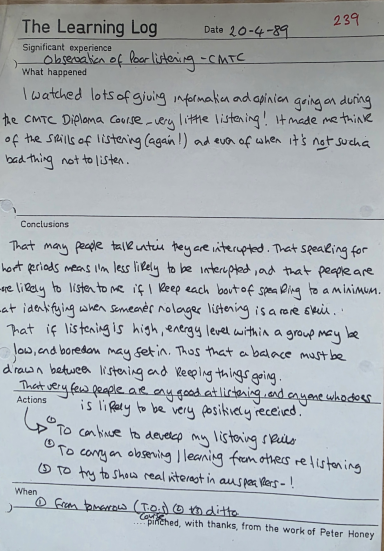 The Learning Log Date 20-4-89 239
Significant experience
Observation of Poor listening - CMTC
What happened
I watched lots of giving information and opinion going on during
the CMTC Diploma Course - very little listening! It made me think
of the skills of listening (again!) and even of when it's not such a
bad thing not to listen.
Conclusions
That many people talk until they are interupted. That speaking for
short periods means I'm less likely to be interupted, and that people are
more likely to listen to me if I keep each bout of speaking to a minimum.
at identifying when someone's no longer listening is a rare skill.
That if listening is high, energy level within a group may be
low, and boredom may set in. Thus that a balance must be
drawn between listening and keeping things going.
That very few people are any good at listening, and anyone who does
is likely to be very positively received.
Actions
① To continue to develop my listening skills
② To carry on observing / learning from others re listening
③ To try to show real interest in all speakers - !
When
① From tomorrow (T.O.S Course) ② ditto
....pinched, with thanks, from the work of Peter Honey